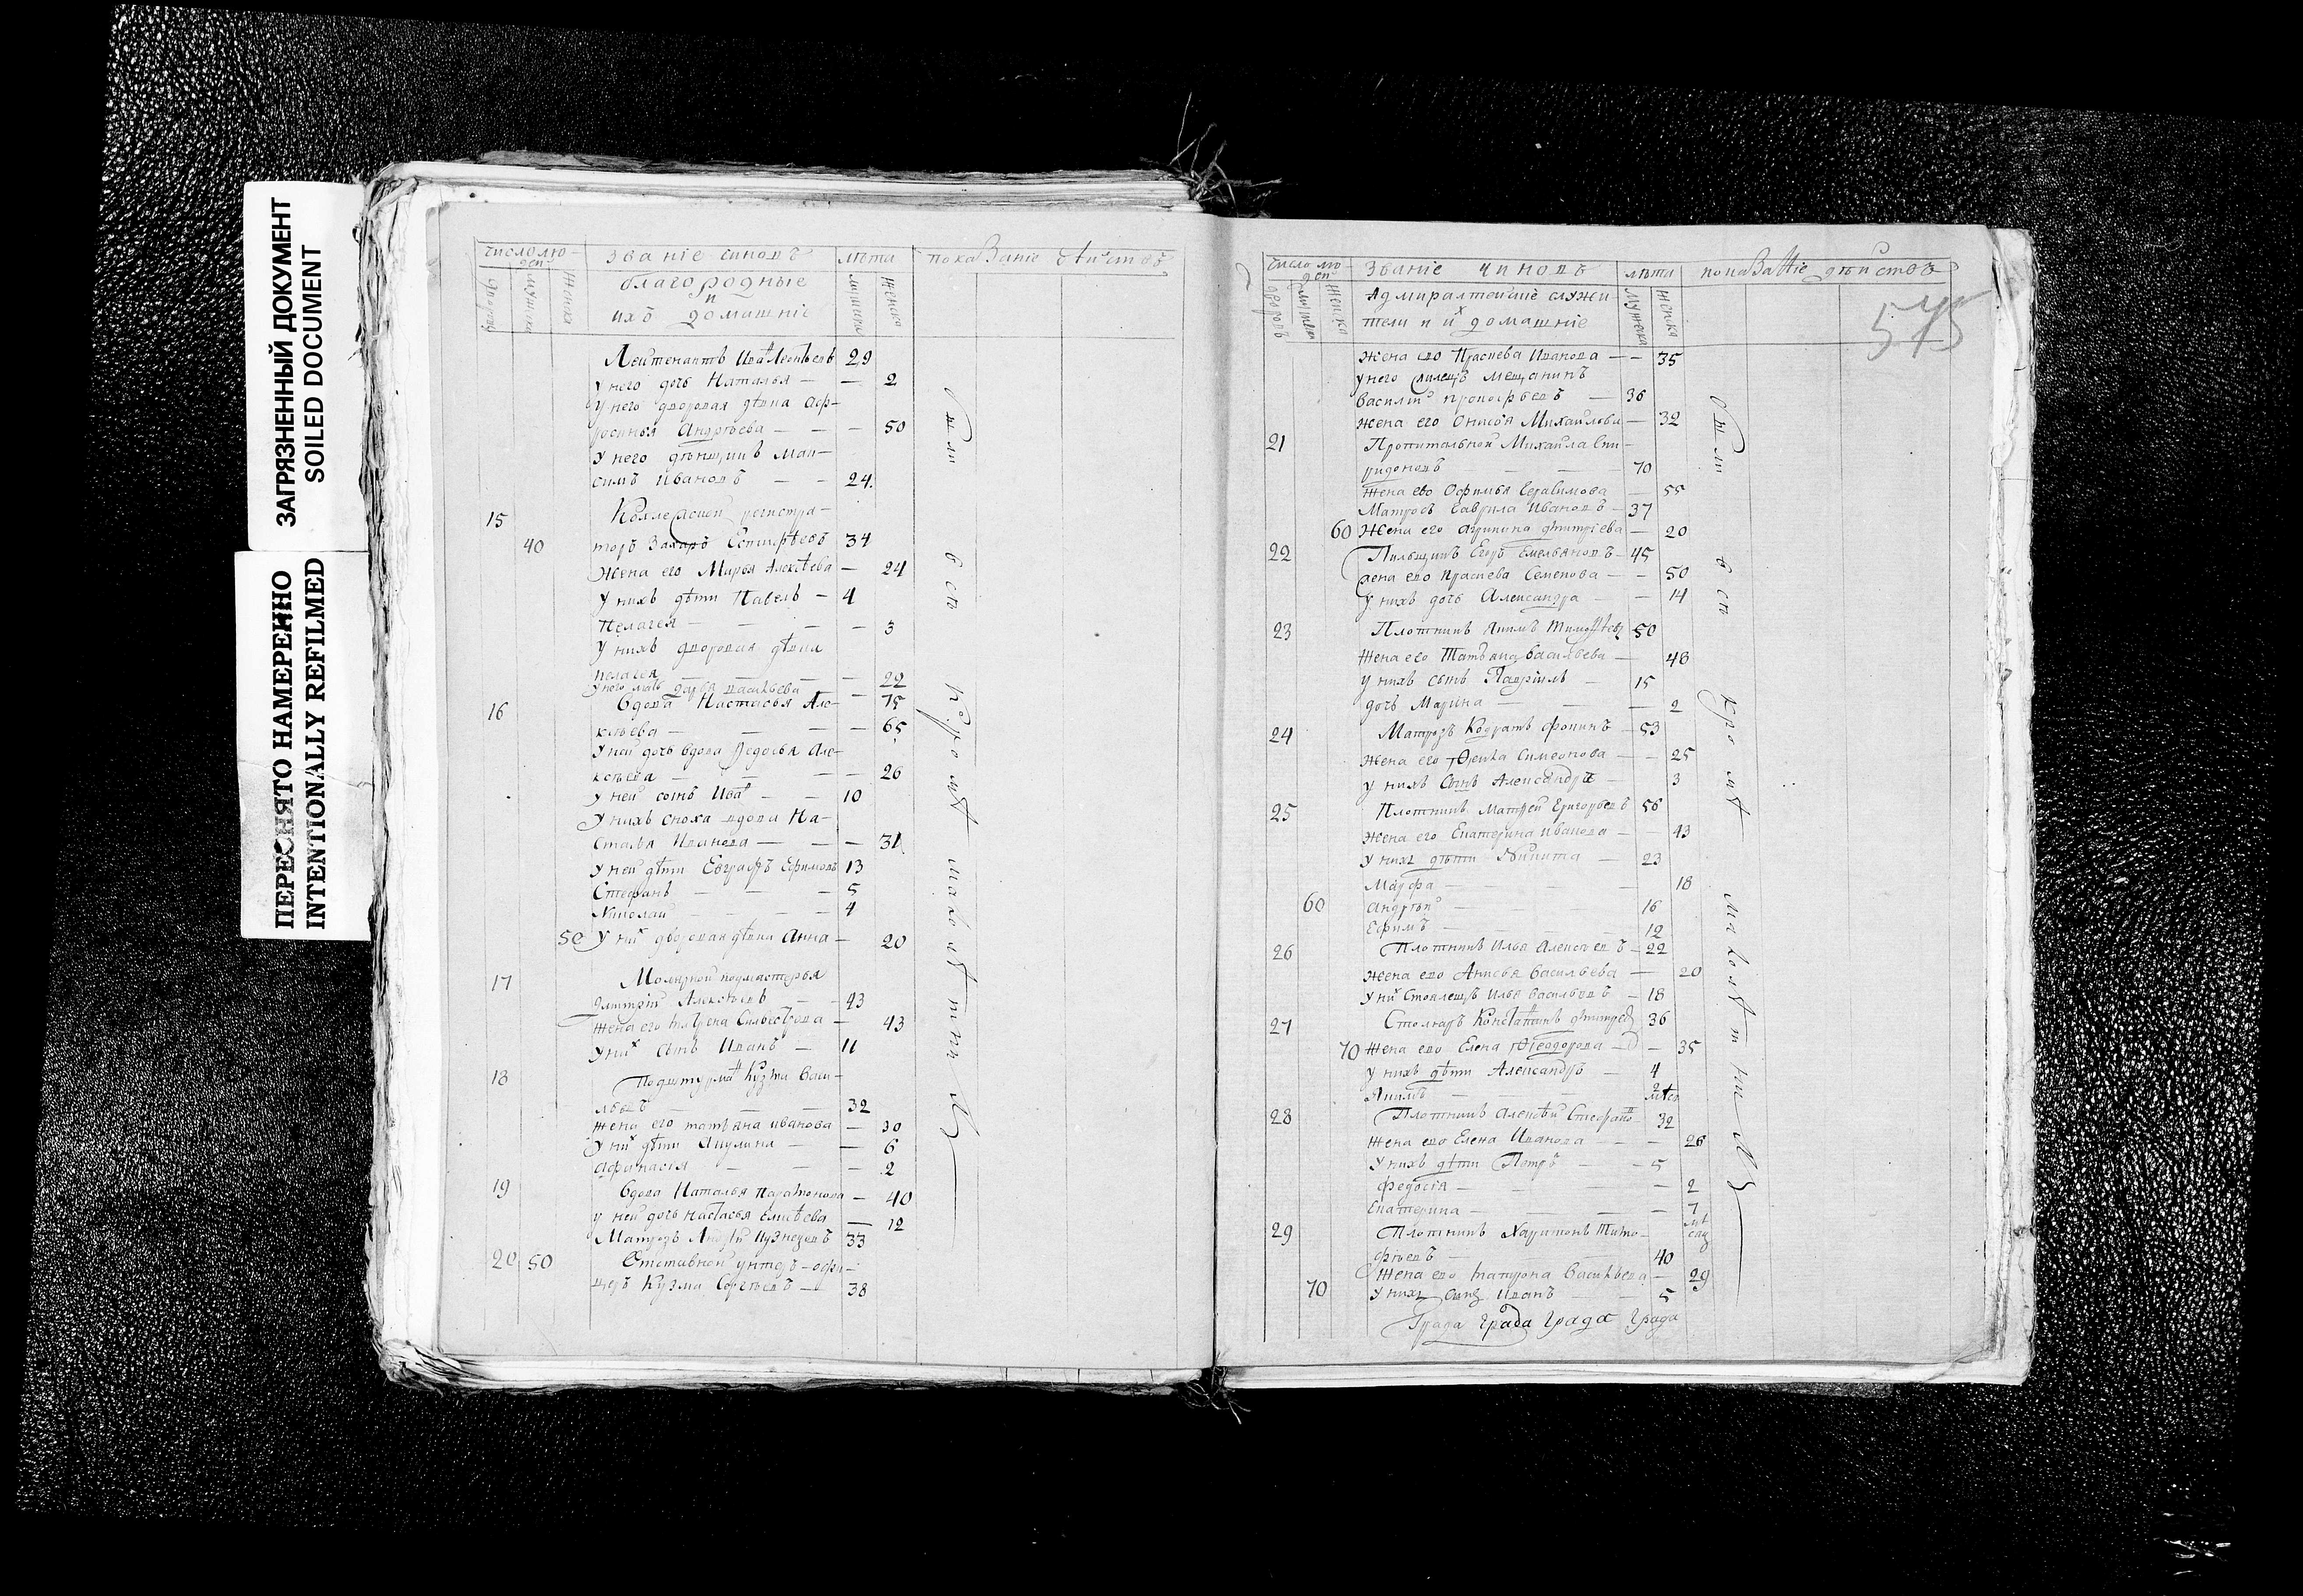 ЗАГРЯЗНЕННЫЙ ДОКУМЕНТ
SOILED DOCUMENT
ПЕРЕСНЯТО НАМЕРЕННО
INTENTIONALLY REFILMED
число лю-
дей
званіе чиновъ
лѣта
показаніе
благородные
и
ихъ домашніе
Лейтенантъ Ива Леонтьевъ 29
у него дочь Наталья — — 2
у него дворовая дѣвка Аф-
росинья Андрѣева — — — 50
у него дѣнщикъ Мак-
симъ Ивановъ — — 24
15 Коллежской регистра-
40 торъ Захаръ Естифѣевъ 34
Жена его Марья Алексѣева — 24
у нихъ дѣти Павелъ — 4
Пелагея — — — — 3
У нихъ дворовая дѣвка
Пелагея — — — — 22
у него мать Дарья Васильева — 75
16 Вдова Настасья Але-
ксѣева — — — — 65
У ней дочь вдова Федосья Але-
ксѣева — — — — 26
у ней сынъ Ива — — 10
У нихъ сноха вдова На-
стасья Иванова — — — 31
У ней дѣти Евграфъ Ефимовъ 13
Стефанъ — — — 5
Николай — — — 4
50 У них дворовая дѣвка Анна — 20
17 Молярной подмастерья
Дмитрій Алексѣевъ — 43
Жена его Матрена Силвестрова — 43
У них сынъ Иванъ — 11
18 Подштурма Кузма Васи-
льевъ — — — 32
Жена его татьяна иванова — 30
У них дѣти Акулина — — 6
Афанасія — — — 2
19 Вдова Наталья Парамонова — 40
у ней дочь Настасья Елисѣева — 12
Матрозъ Андрей Кузнецовъ 33
20 50 Отставной унтеръ-офи-
церъ Кузма Сергѣевъ — 38
Были
все
кромѣ
малолѣтныхъ
число лю-
дей
Званіе чиновъ
лѣта
показаніе дѣйствъ
Адмиралтейскіе служи-
тели и их домашніе
575
жена ево Прасковья Иванова — — 35
у него жилецъ мещанинъ
Василий Прокофьевъ — 36
жена его Онисья Михайлова — 32
21 Пропитальной Михайла Спи-
ридоновъ — — — 70
жена ево Офимья Герасимова — 55
Матросъ Гаврила Ивановъ — 37
60 Жена его Акулина Дмитріева — 20
22 Пильщикъ Егоръ Емельяновъ — 45
жена ево Прасковья Семенова — — 50
у нихъ дочь Александра — — 14
23 Плотникъ Якимъ Тимофѣевъ 50
Жена его Татьяна Васильева — 48
у нихъ сынъ Гаврилъ — 15
дочь Марина — — — 2
24 Матрозъ Кодратъ Фокинъ — 53
Жена его Фекла Симеонова — — 25
у нихъ Сынъ Александръ — 3
25 Плотникъ Матвей Григорьевъ 56
Жена его Екатерина Иванова — — 43
У нихъ дѣти Никита — 23
Марфа — — — — 18
60 Андрѣй — — — 16
Ефимъ — — — 12
26 Плотникъ Илья Алексѣевъ — 22
Жена ево Анисья Васильева — 20
У них Стоялецъ Илья Васильевъ — 18
27 Столяръ Константинъ Дмитрев 36
70 Жена ево Елена Феодорова — — 35
у нихъ дѣти Александръ — 4
Якимъ — — — 2 мѣся
28 Плотникъ Алексѣй Стефано 32
Жена ево Елена Иванова — — 26
У нихъ дѣти Петръ — — 5
Федосія — — — — 2
Екатерина — — — — 7 мѣсяц
29 Плотникъ Харитонъ Тимо-
фѣевъ — — — 40
Жена ево Матрона Васильева — 29
70 У нихъ сынъ Иванъ — — 5
Града Града Града Града
Были
все
кромѣ
малолѣтныхъ